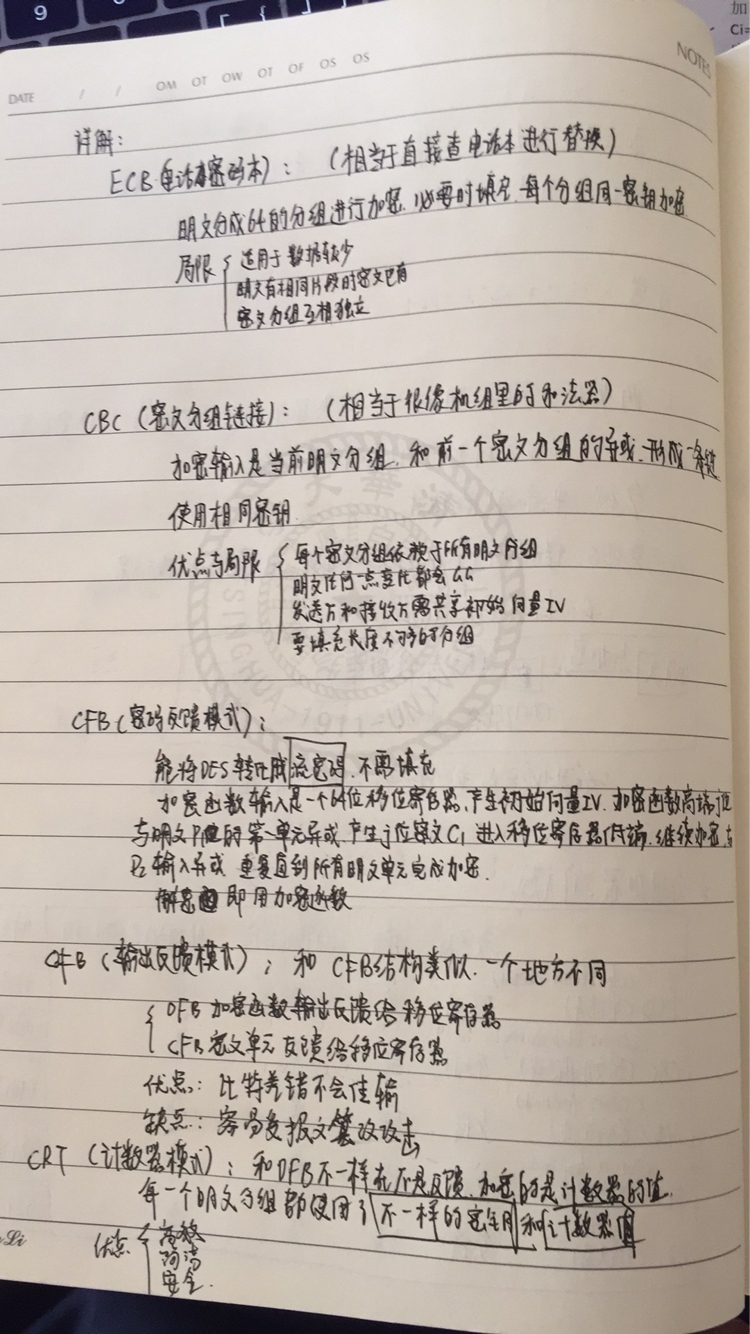 9
加
Ci=
DATE / / OM OT OW OT OF OS OS
NOTES
详解:
ECB(电话本密码本): (相当于直接查电话本进行替换)
明文分成64的分组进行加密.必要时填充.每个分组同一密钥加密
局限 { 适用于数据较少
明文有相同片段时密文也有
密文分组互相独立
CBC(密文分组链接): (相当于很像机组里的加法器)
加密输入是当前明文分组,和前一个密文分组的异或.形成一条链
使用相同密钥.
优点与局限 { 每个密文分组依赖于所有明文分组
明文任何一点变化都会GG
发送方和接收方需共享初始向量IV
要填充长度不够的分组
CFB(密码反馈模式):
能将DES转化成流密码.不需填充
加密函数输入是一个64位移位寄存器.产生初始向量IV.加密函数高端j位
与明文P的第一单元异或.产生j位密文C1进入移位寄存器低端.继续加密.与
P2输入异或 重复直到所有明文单元完成加密.
解密 即用加密函数
OFB(输出反馈模式): 和CFB结构类似.一个地方不同
{ OFB 加密函数输出反馈给移位寄存器
CFB 密文单元反馈给移位寄存器
优点: 比特差错不会传输
缺点: 容易受报文篡改攻击
CRT(计数器模式): 和OFB不一样在不是反馈.加密的是计数器的值.
每一个明文分组都使用了不一样的密钥和计数器值
SINGHUA-1911-UNIV
Li
优点 {
安全.